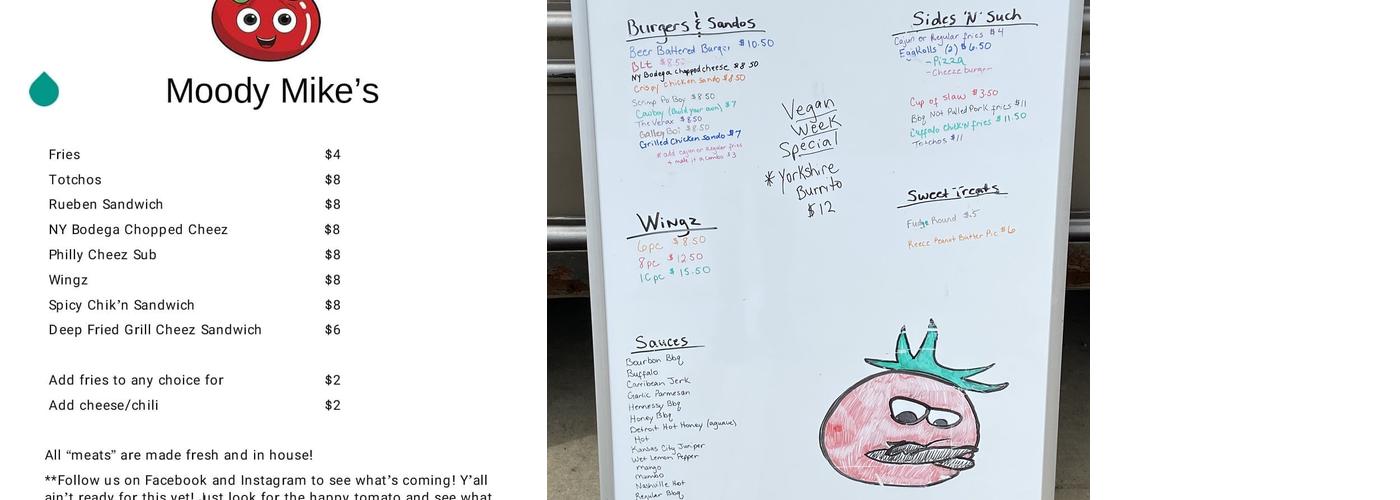 Moody Mike's
Fries $4
Totchos $8
Rueben Sandwich $8
NY Bodega Chopped Cheez $8
Philly Cheez Sub $8
Wingz $8
Spicy Chik'n Sandwich $8
Deep Fried Grill Cheez Sandwich $6
Add fries to any choice for $2
Add cheese/chili $2
All “meats” are made fresh and in house!
**Follow us on Facebook and Instagram to see what's coming! Y'all
ain't ready for this yet! Just look for the happy tomato and see what
Burgers & Sandos
Beer Battered Burger $10.50
BLT $8.50
NY Bodega chopped cheese $8.50
Crispy chicken sando $8.50
Scrimp Po Boy $8.50
Cowboy (build your own) $7
The Verax $8.50
Galley Boi $8.50
Grilled Chicken Sando $7
* add cajun or Regular fries
+ make it a combo $3
Wingz
6pc $8.50
8pc $12.50
10pc $15.50
Sauces
Bourbon Bbq
Buffalo
Carribean Jerk
Garlic Parmesan
Hennessy Bbq
Honey Bbq
Detroit Hot Honey (aguave)
Hot
Kansas City Juniper
Wet Lemon Pepper
Mango
Mambo
Nashville Hot
Regular Bbq
Vegan
Week
Special
* Yorkshire
Burrito
$12
Sides 'N' Such
Cajun or Regular fries $4
EggRolls (2) $6.50
- Pizza
- Cheezeburger
Cup of Slaw $3.50
Bbq Not Pulled Pork fries $11
Buffalo Chik'N fries $11.50
Totchos $11
Sweet Treats
Fudge Round $5
Reece Peanut Butter Pie $6